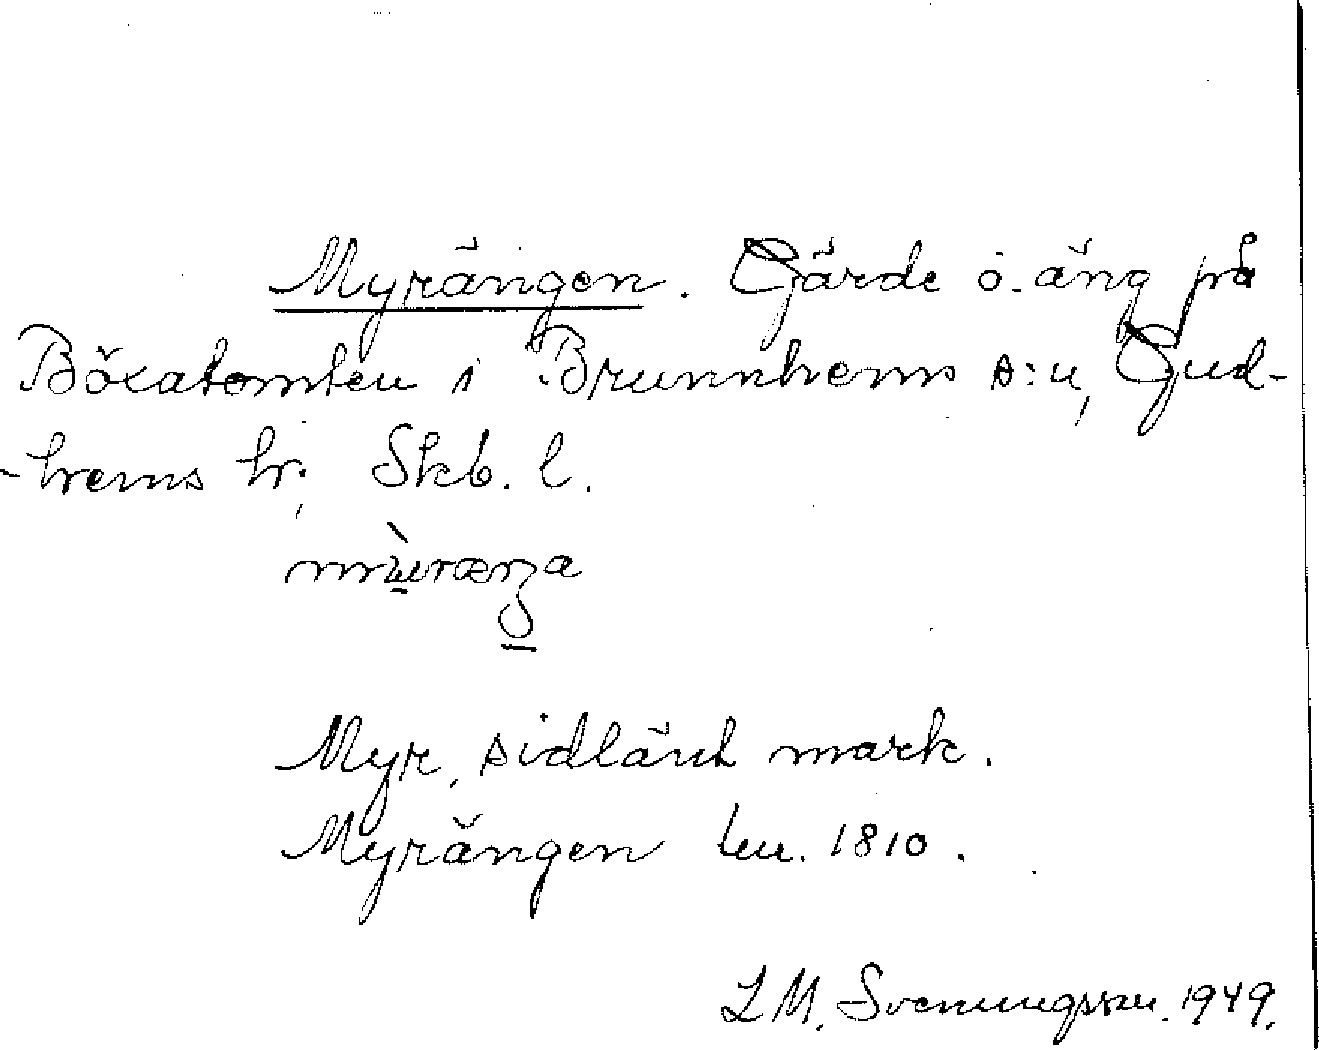 Myrängen. Gärde o. äng på
Böxatomten i Brunnhems s:n, Gud-
-hems hr; Skb. l.
Myr, sidlänt mark.
Myrängen lm. 1810.
L M. Svenungsson. 1949.